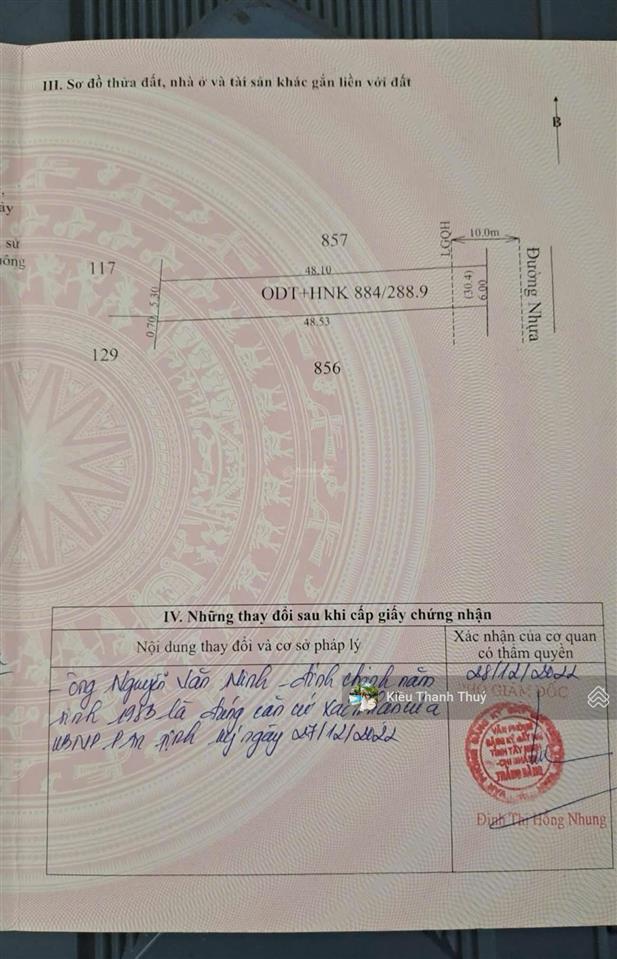 III. Sơ đồ thửa đất, nhà ở và tài sản khác gắn liền với đất
B
ảy
sử
uông
857
LGQH
10.0m
117
48.10
Đường Nhựa
0.70
5.30
ODT+HNK 884/288.9
(30.4)
6.00
48.53
129
856
IV. Những thay đổi sau khi cấp giấy chứng nhận
Nội dung thay đổi và cơ sở pháp lý
Xác nhận của cơ quan
có thẩm quyền
- Ông Nguyễn Văn Ninh - đính chính năm
sinh 1983 là đúng căn cứ xác nhận của
UBND P. An Tịnh ngày 27/12/2022
28/12/2022
PHÓ GIÁM ĐỐC
Kiều Thanh Thuý
VĂN PHÒNG
ĐĂNG KÝ ĐẤT ĐAI
TỈNH TÂY NINH
-CHI NHÁNH
TRẢNG BÀNG
Đinh Thị Hồng Nhung